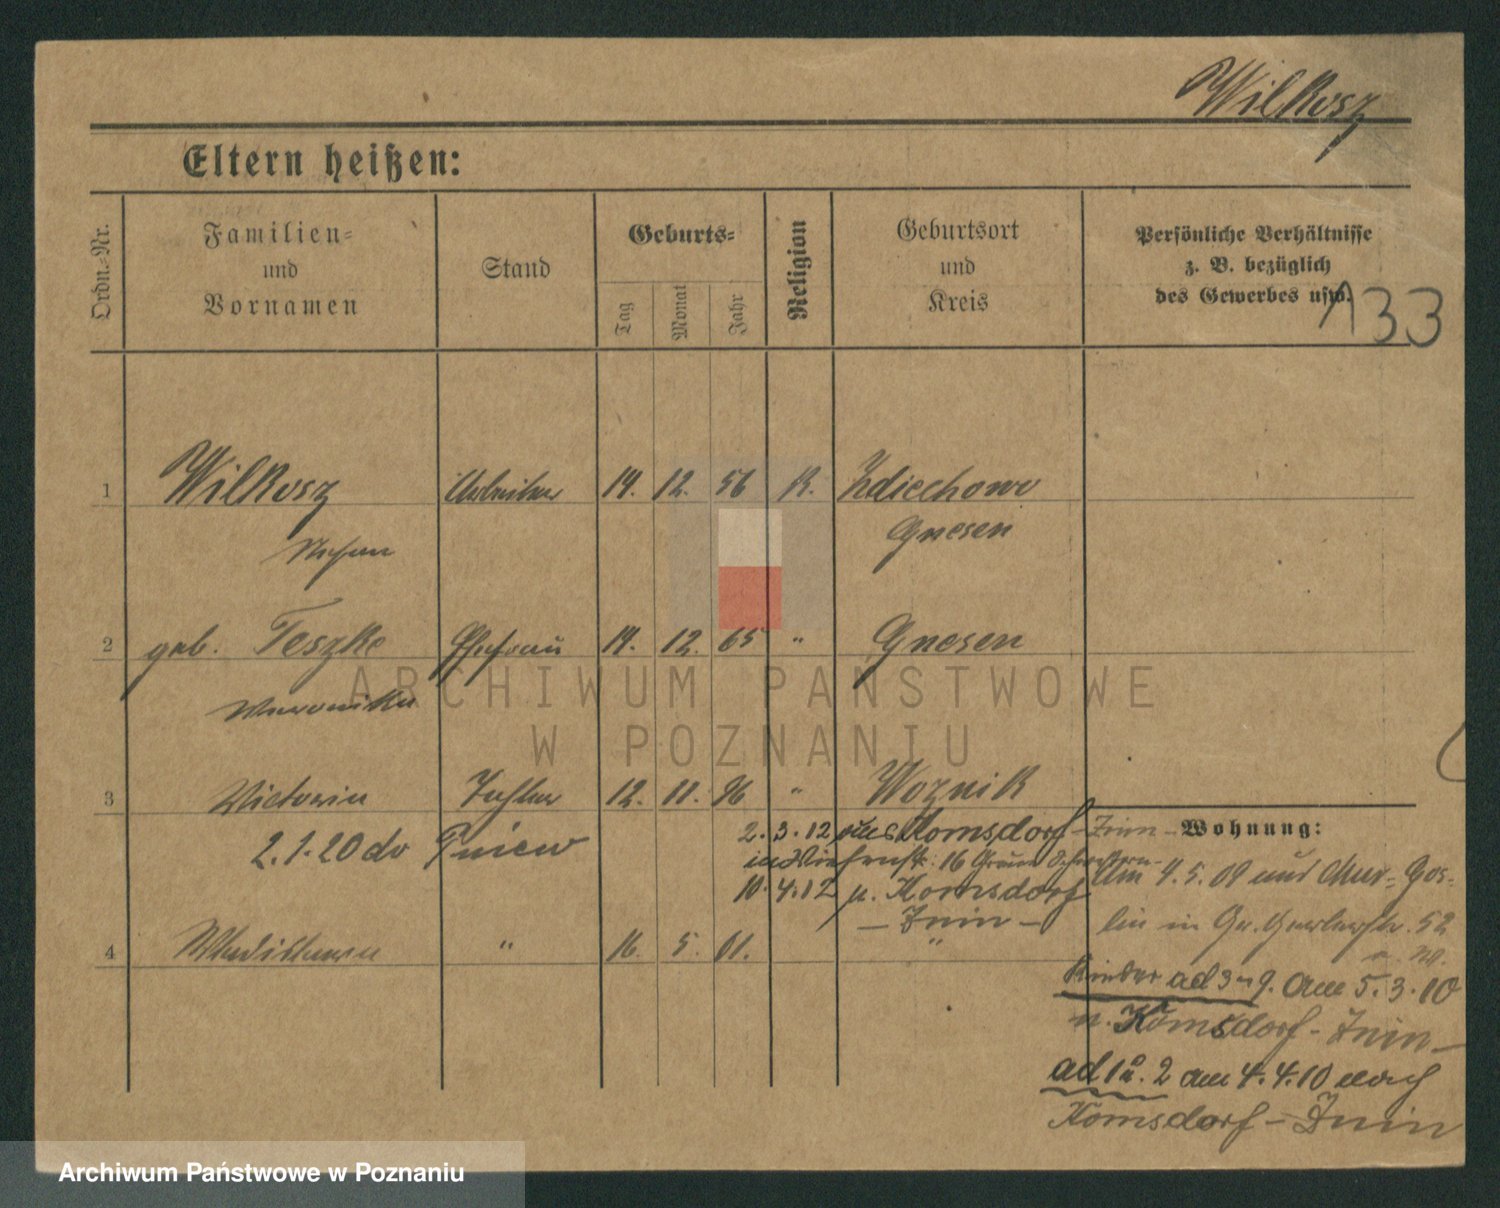 Wilkosz
Eltern heißen:
Ordn.-Nr.
Familien-
und
Vornamen
Stand
Geburts-
Tag
Monat
Jahr
Religion
Geburtsort
und
Kreis
Persönliche Verhältnisse
z. B. bezüglich
des Gewerbes usw.
133
1 Wilkosz Arbeiter 14. 12. 56 K. Zdiechowo
Stefan Gnesen
2 geb. Teszke Ehefrau 14. 12. 65 " Gnesen
Weronika
ARCHIWUM PAŃSTWOWE
W POZNANIU
3 Victoria Tochter 12. 11. 96 " Woznik
2.1.20 do Pniew
2.3.12 aus Komsdorf - Znin -
in 16
10.4.12 n. Komsdorf
- Znin -
4 Wladislawa " 16. 5. 01. "
Wohnung:
Am 4.5.09 aus Mur= Gos=
lin in Gr. Gerberstr. 52
Kinder ad 3-9. am 5.3.10
n. Komsdorf - Znin -
ad 1 u. 2 am 4.4.10 nach
Komsdorf - Znin
Archiwum Państwowe w Poznaniu